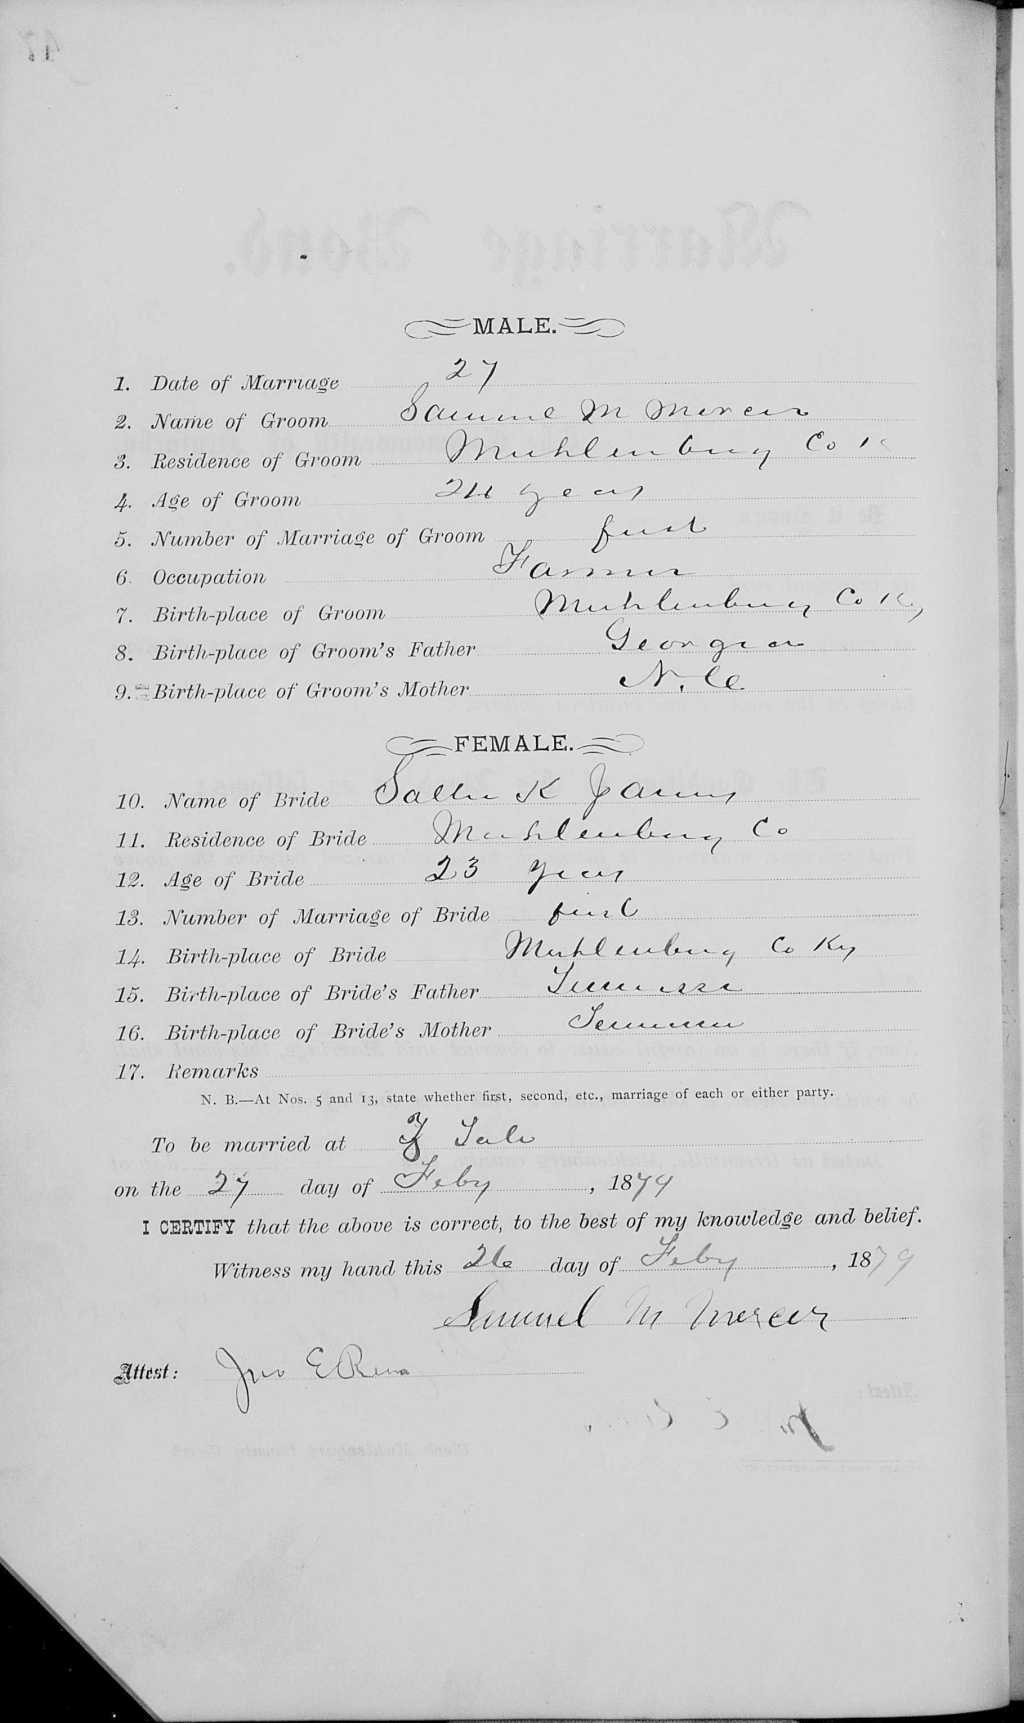 MALE.
1. Date of Marriage 27
2. Name of Groom Samuel M Mercer
3. Residence of Groom Muhlenburg Co K
4. Age of Groom 24 years
5. Number of Marriage of Groom first
6. Occupation Farmer
7. Birth-place of Groom Muhlenburg Co Ky
8. Birth-place of Groom's Father Georgia
9. Birth-place of Groom's Mother N. Ca
FEMALE.
10. Name of Bride Sallie K
11. Residence of Bride Muhlenburg Co
12. Age of Bride 23 years
13. Number of Marriage of Bride first
14. Birth-place of Bride Muhlenburg Co Ky
15. Birth-place of Bride's Father Tennessee
16. Birth-place of Bride's Mother Tennessee
17. Remarks
N. B.—At Nos. 5 and 13, state whether first, second, etc., marriage of each or either party.
To be married at
on the 27 day of Feby, 1879
I CERTIFY that the above is correct, to the best of my knowledge and belief.
Witness my hand this 26 day of Feby, 1879
Samuel M Mercer
Attest: Jno E